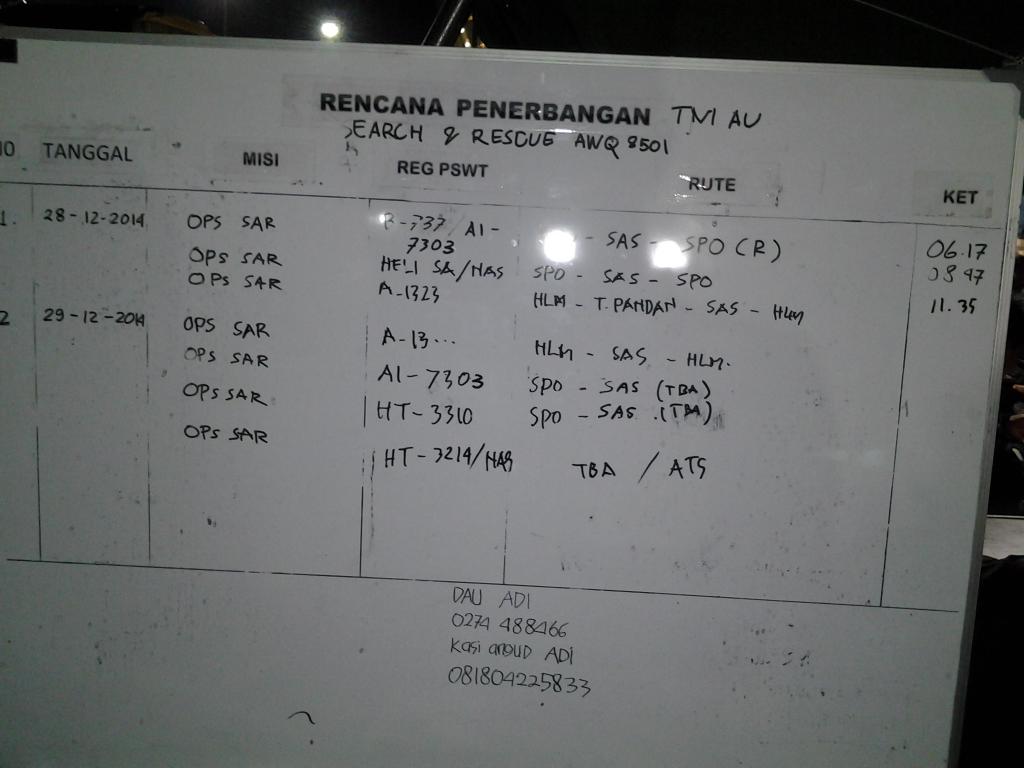 RENCANA PENERBANGAN TNI AU
SEARCH & RESCUE AWQ 8501
NO TANGGAL MISI REG PSWT RUTE KET
1. 28-12-2014 OPS SAR B-737/AI-7303 - SAS - SPO (R) 06.17
OPS SAR HELI SA/NAS SPO - SAS - SPO
OPS SAR A-1323 HLM - T. PANDAN - SAS - HLM 11.35
2 29-12-2014 OPS SAR A-13... HLM - SAS - HLM.
OPS SAR AI-7303 SPO - SAS (TBA)
OPS SAR HT-3310 SPO - SAS (TBA)
OPS SAR HT-3214/NAS TBA / ATS
DAU ADI
0274 488466
Kasi ADI
081804225833